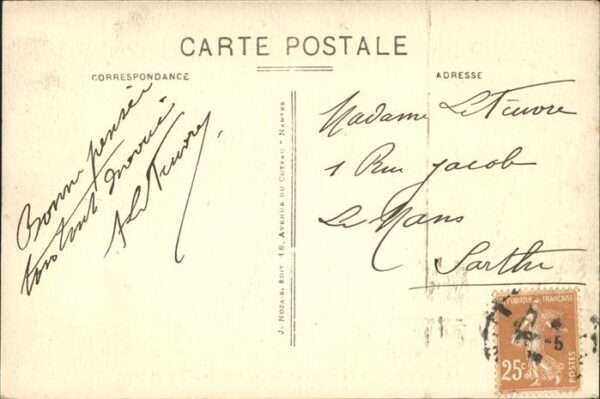 CARTE POSTALE
CORRESPONDANCE
ADRESSE
Bonne pensée
A Le Tievre
J. NOZAIS, EDIT 16, AVENUE DU COTEAU - NANTES
Madame Le Tievre
1 Rue Jacob
Le Mans
Sarthe
REPUBLIQUE FRANÇAISE
25c
POSTES